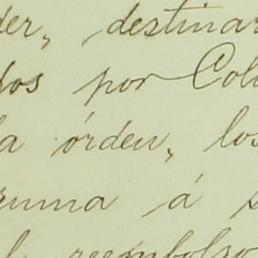 der, destinar
dos por Col
a órden, los
suma á s
l reembolso